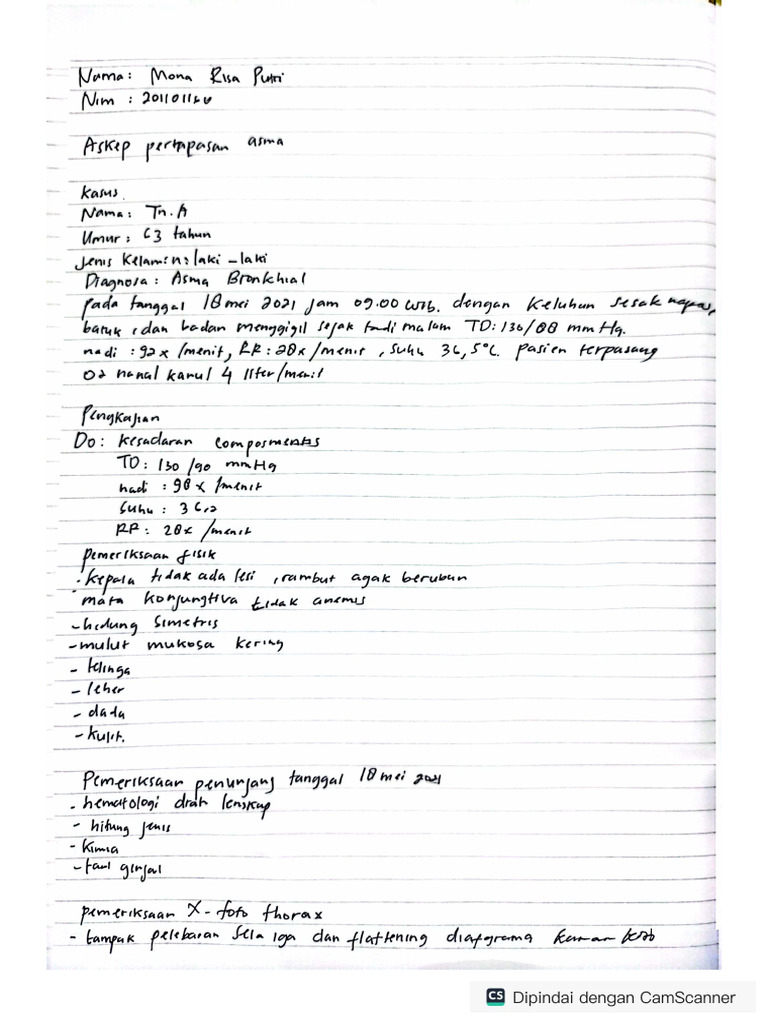 Nama : Mona Risa Putri
Nim :
Askep pernapasan asma
Kasus.
Nama : Tn. A
Umur : 63 tahun
Jenis Kelamin : laki - laki
Diagnosa : Asma Bronkhial
pada tanggal 18 mei 2021 jam 09.00 WIB. dengan keluhan sesak napas,
batuk, dan badan menggigil sejak tadi malam TD : 130/88 mmHg.
nadi : 92x/menit, RR : 28x/menit, suhu 36,5°C. pasien terpasang
O2 nanal kanul 4 liter/menit
Pengkajian
Do : kesadaran composmentis
TD : 130/90 mmHg
nadi : 98x/menit
Suhu : 36,2
RR : 28x/menit
pemeriksaan fisik
- kepala tidak ada lesi, rambut agak beruban
- mata konjungtiva tidak anemis
- hidung simetris
- mulut mukosa kering
- telinga
- leher
- dada
- kulit.
Pemeriksaan penunjang tanggal 18 mei 2021
- hematologi drah lengkap
- hitung jenis
- Kimia
- faal ginjal
pemeriksaan X-foto thorax
- tampak pelebaran sela iga dan flattening diafgrama
CS Dipindai dengan CamScanner